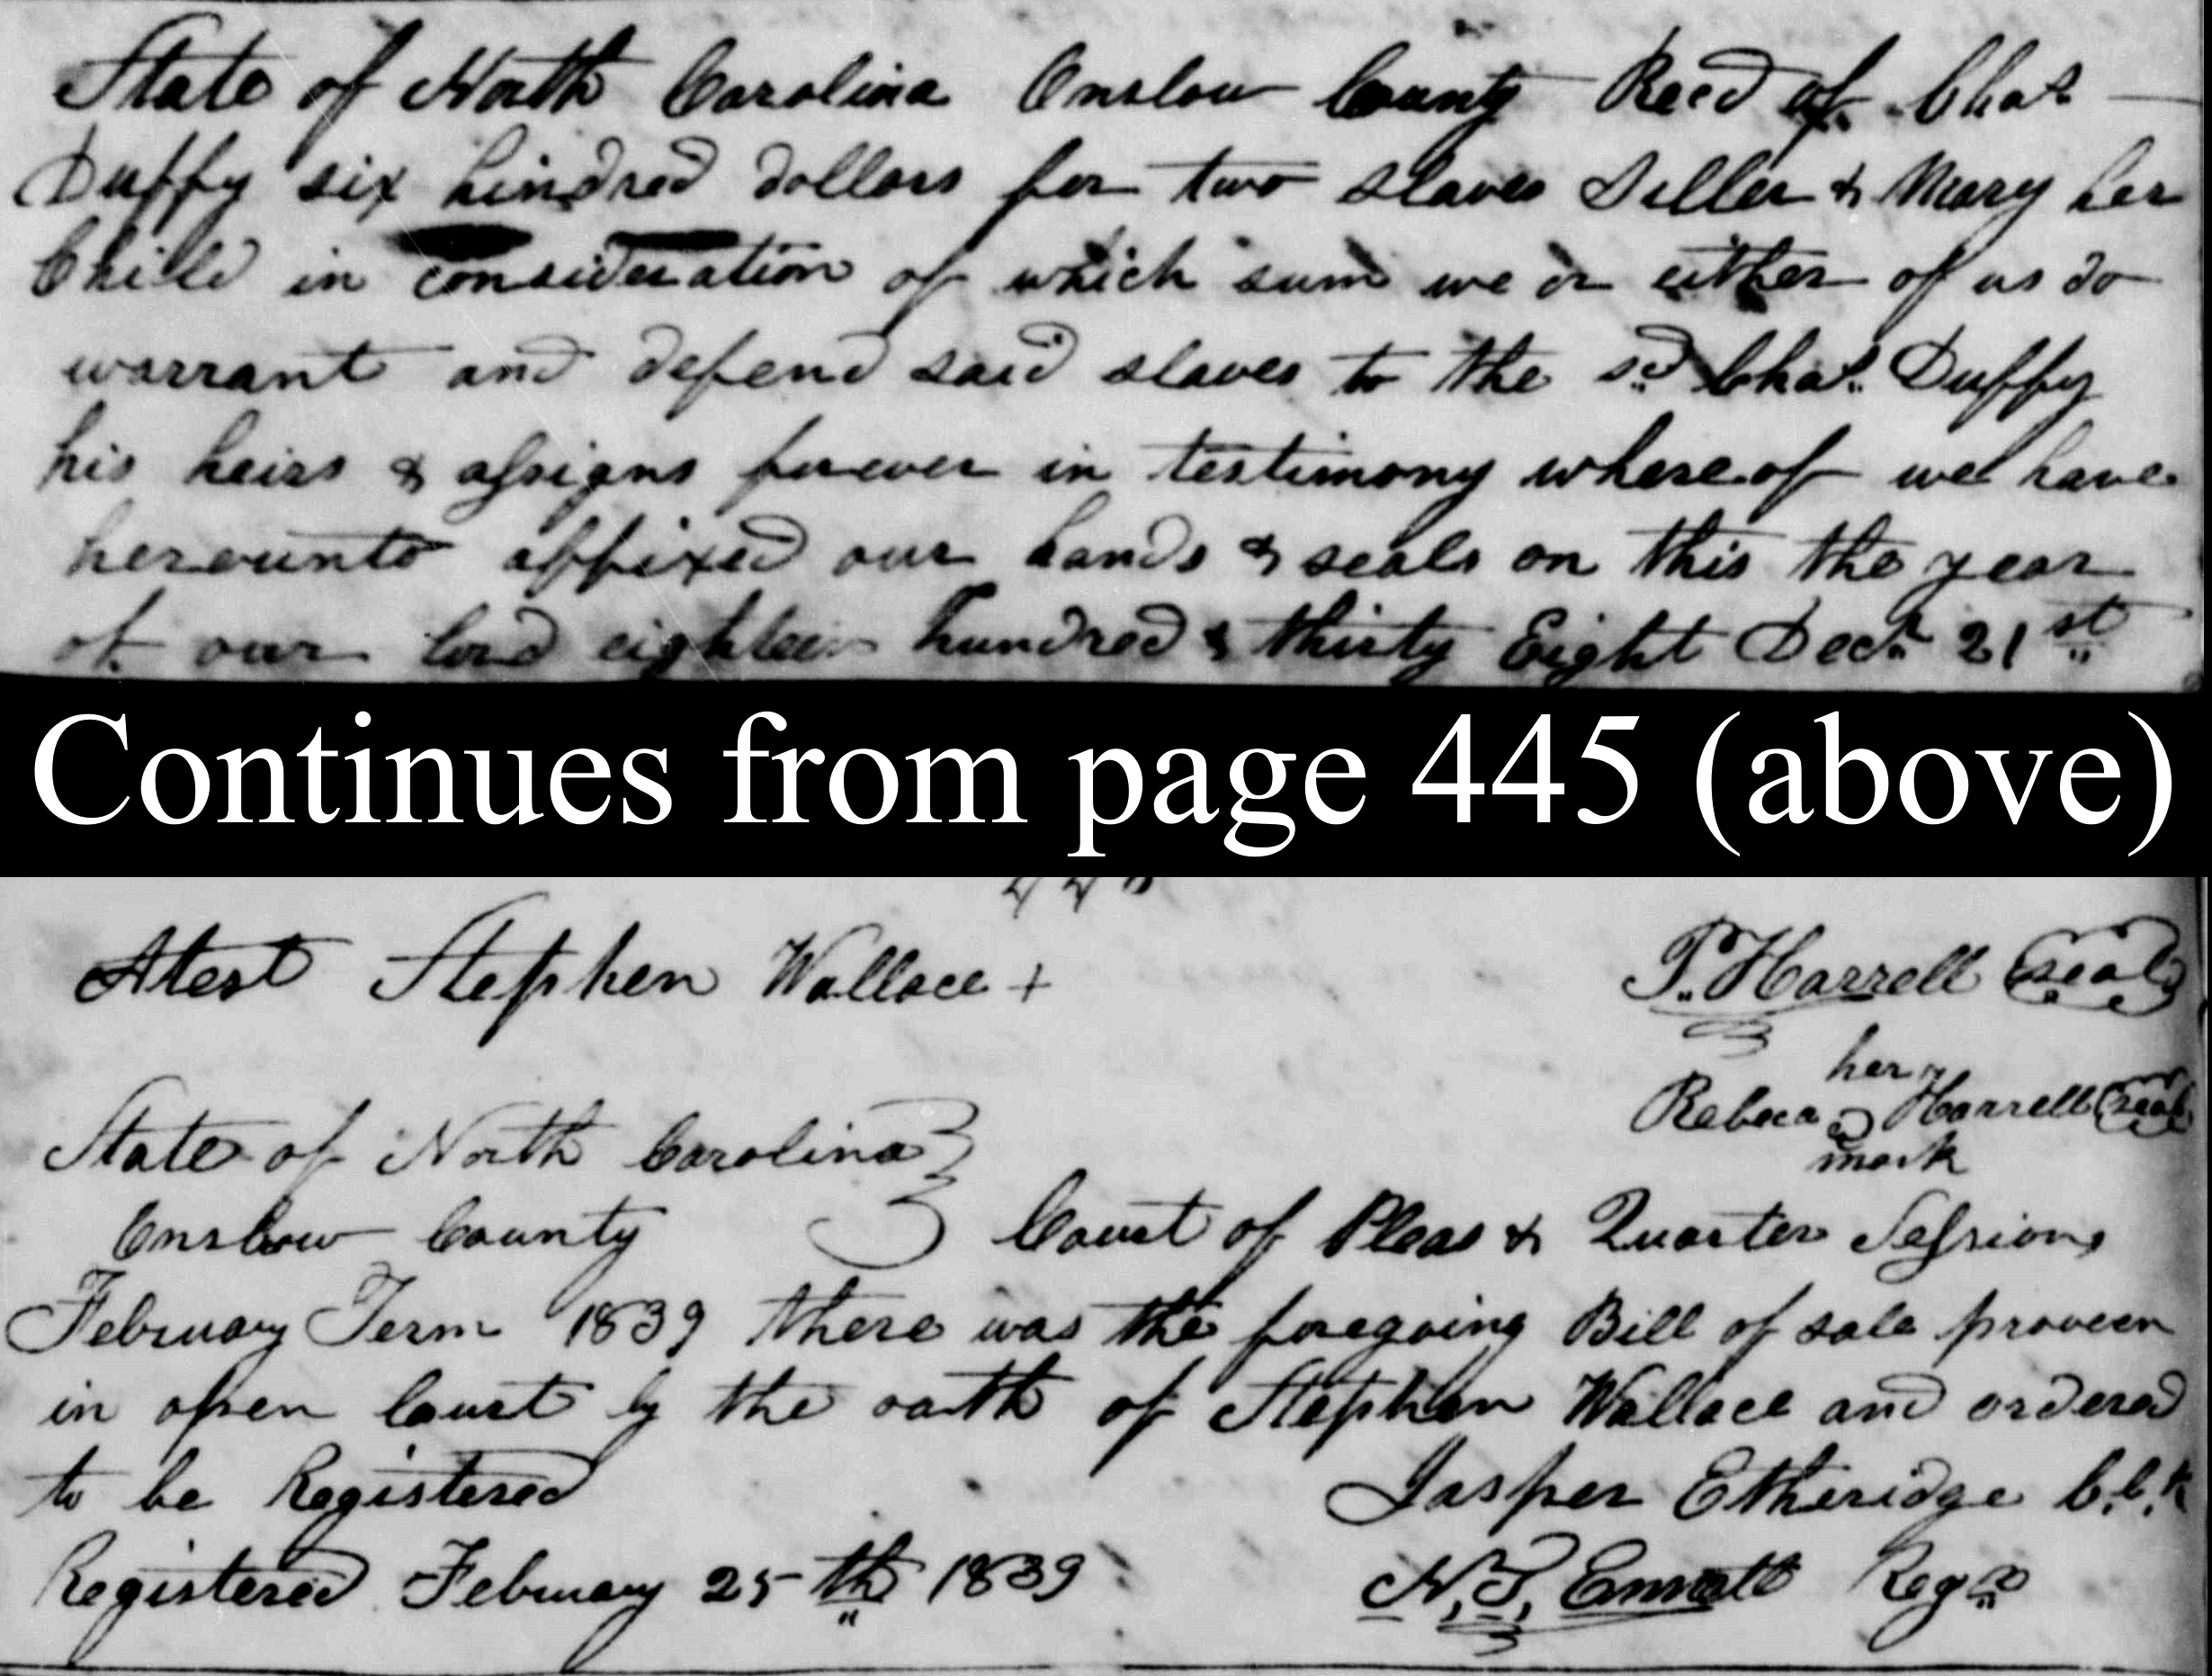 State of North Carolina Onslow County Recd of Chas
Duffy six hundred dollars for two slaves Siller & Mary her
Child in consideration of which sum we or either of us do
warrant and defend said slaves to the sd Chas. Duffy
his heirs & assigns forever in testimony whereof we have
hereunto affixed our hands & seals on this the year
of our lord eighteen hundred & thirty Eight Decr 21st
Continues from page 445 (above)
Atest Stephen Wallace +
P. Harrell seal
her
Rebeca Harrell seal
mark
State of North Carolina
Onslow County Court of Pleas & Quarter Sessions
February Term 1839 there was the foregoing Bill of sale proveen
in open Court by the oath of Stephen Wallace and ordered
to be Registered
Jasper Etheridge C.C.k
Registered February 25th 1839
Regr